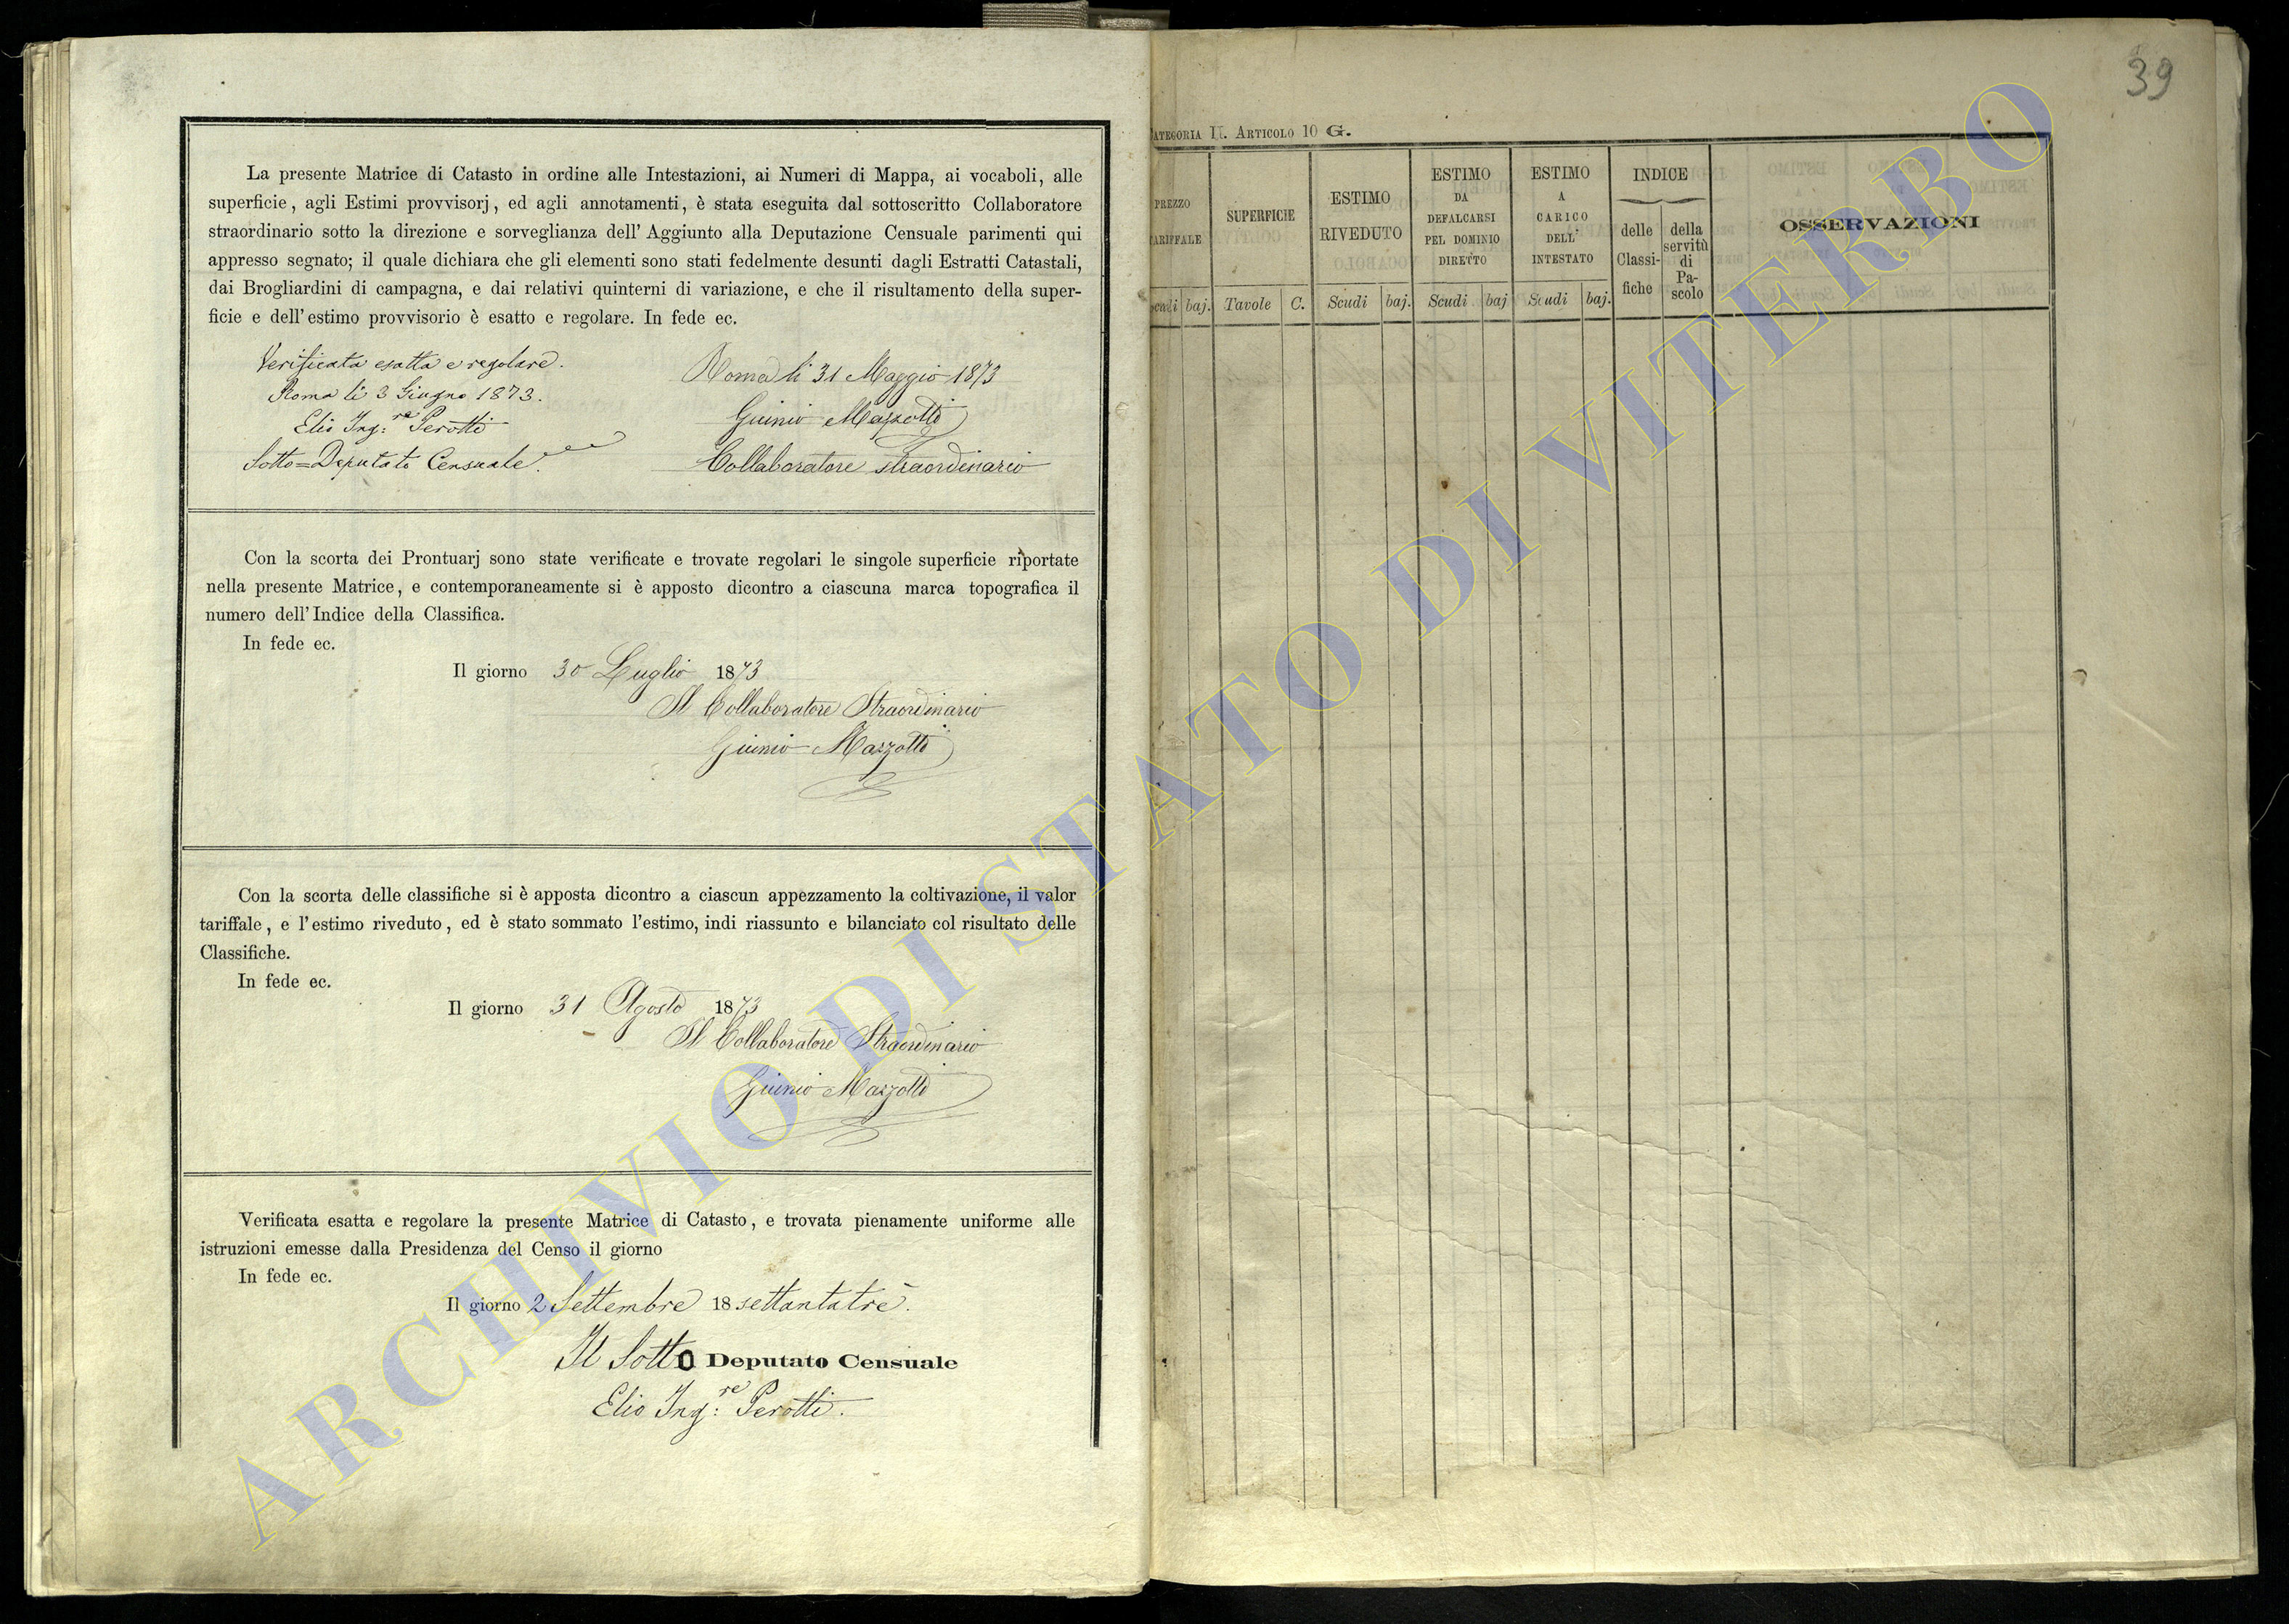 La presente Matrice di Catasto in ordine alle Intestazioni, ai Numeri di Mappa, ai vocaboli, alle
superficie, agli Estimi provvisorj, ed agli annotamenti, è stata eseguita dal sottoscritto Collaboratore
straordinario sotto la direzione e sorveglianza dell' Aggiunto alla Deputazione Censuale parimenti qui
appresso segnato; il quale dichiara che gli elementi sono stati fedelmente desunti dagli Estratti Catastali,
dai Brogliardini di campagna, e dai relativi quinterni di variazione, e che il risultamento della super-
ficie e dell' estimo provvisorio è esatto e regolare. In fede ec.
Verificata esatta e regolare.
Roma li 3 Giugno 1873.
Elio Ing:re Perotti
Sotto=Deputato Censuale.
Roma li 31 Maggio 1873
Giunio Mazzotti
Collaboratore straordinario
Con la scorta dei Prontuarj sono state verificate e trovate regolari le singole superficie riportate
nella presente Matrice, e contemporaneamente si è apposto dicontro a ciascuna marca topografica il
numero dell' Indice della Classifica.
In fede ec.
Il giorno 30 Luglio 1873
Il Collaboratore Straordinario
Giunio Mazzotti
Con la scorta delle classifiche si è apposta dicontro a ciascun appezzamento la coltivazione, il valor
tariffale, e l' estimo riveduto, ed è stato sommato l'estimo, indi riassunto e bilanciato col risultato delle
Classifiche.
In fede ec.
Il giorno 31 Agosto 1873
Il Collaboratore Straordinario
Giunio Mazzotti
Verificata esatta e regolare la presente Matrice di Catasto, e trovata pienamente uniforme alle
istruzioni emesse dalla Presidenza del Censo il giorno
In fede ec.
Il giorno 2 Settembre 18 settantatrè.
Il Sotto Deputato Censuale
Elio Ing:re Perotti.
39
CATEGORIA II. ARTICOLO 10 G.
PREZZO
TARIFFALE
SUPERFICIE
ESTIMO
RIVEDUTO
ESTIMO
DA
DEFALCARSI
PEL DOMINIO
DIRETTO
ESTIMO
A
CARICO
DELL'
INTESTATO
INDICE
delle
Classi-
fiche
della
servitù
di
Pa-
scolo
OSSERVAZIONI
Scudi baj. Tavole C. Scudi baj. Scudi baj Scudi baj.
ARCHIVIO DI STATO DI VITERBO